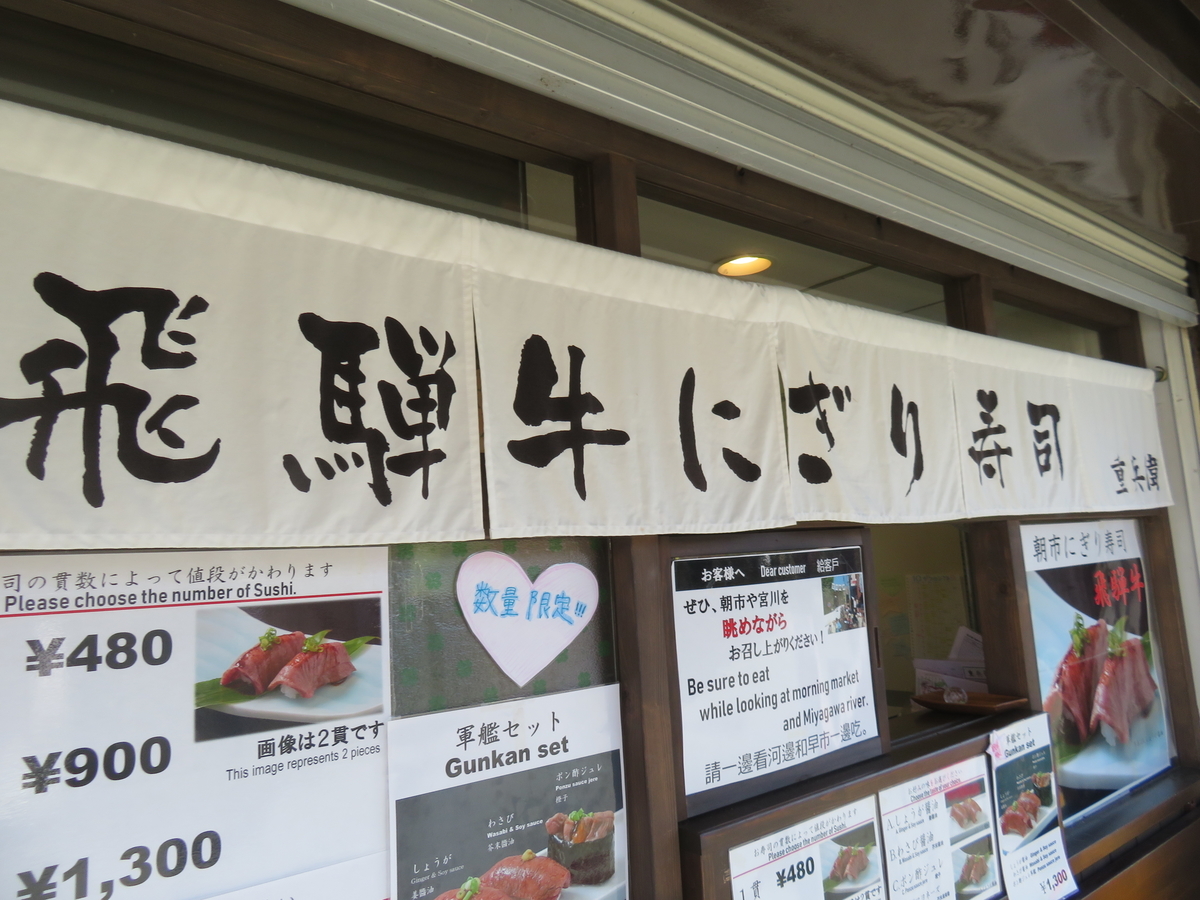 飛騨牛にぎり寿司
重兵衛
司の貫数によって値段がかわります
Please choose the number of Sushi.
¥480
¥900
¥1,300
画像は2貫です
This image represents 2 pieces
数量限定!!!
軍艦セット
Gunkan set
ポン酢ジュレ
Ponzu sauce jure
橙子
わさび
Wasabi & Soy sauce
芥末醤油
しょうが
Ginger & Soy sauce
姜醤油
お客様へ Dear customer 給客戶
ぜひ、朝市や宮川を
眺めながら
お召し上がりください!
Be sure to eat
while looking at morning market
and Miyagawa river.
請一邊看河邊和早市一邊吃。
朝市にぎり寿司
飛騨牛
お寿司の貫数によって値段がかわります
Please choose the number of Sushi.
1貫
¥480
A.しょうが醤油
B.わさび醤油
C.ポン酢ジュレ
軍艦セット
Gunkan set
¥1,300